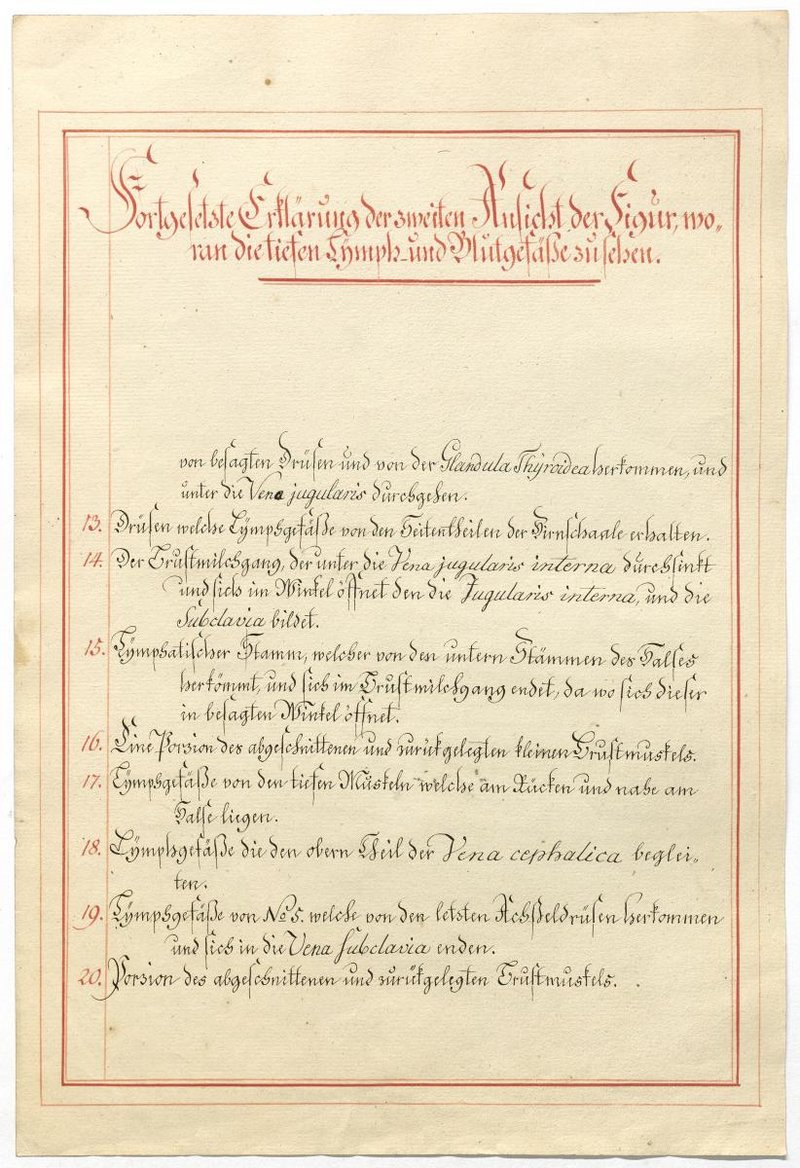 Fortgesetzte Erklärung der zweiten Ansicht der Figur, wo„
ran die tiefen Lÿmph-und Blutgefäße zu sehen.
von besagten Drüsen und von der Glandula Thÿroidea herkommen, und
unter die Vena jugularis durchgehen.
13. Drüsen welche Lÿmphgefäße von den Seitentheilen der Hirnschaale erhalten.
14. Der Brustmilchgang, der unter die Vena jugularis interna durchsinkt
und sich im Winkel öffnet den die Jugularis interna, und die
Subclavia bildet.
15. Lÿmphatischer Stamm, welcher von den untern Stämmen des Halses
herkömmt, und sich im Brustmilchgang endet, da wo sich dieser
in besagten Winkel öffnet.
16. Eine Porzion des abgeschnittenen und zurükgelegten kleinen Brustmuskels.
17. Lÿmphgefäße von den tiefen Muskeln welche am Räcken und nahe am
Halse liegen.
18. Lÿmphgefäße die den obern Theil der Vena cephalica beglei„
ten.
19. Lÿmphgefäße von No 5. welche von den letzten Achßeldrüsen herkommen
und sich in die Vena subclavia enden.
20. Porzion des abgeschnittenen und zurükgelegten Brustmuskels.